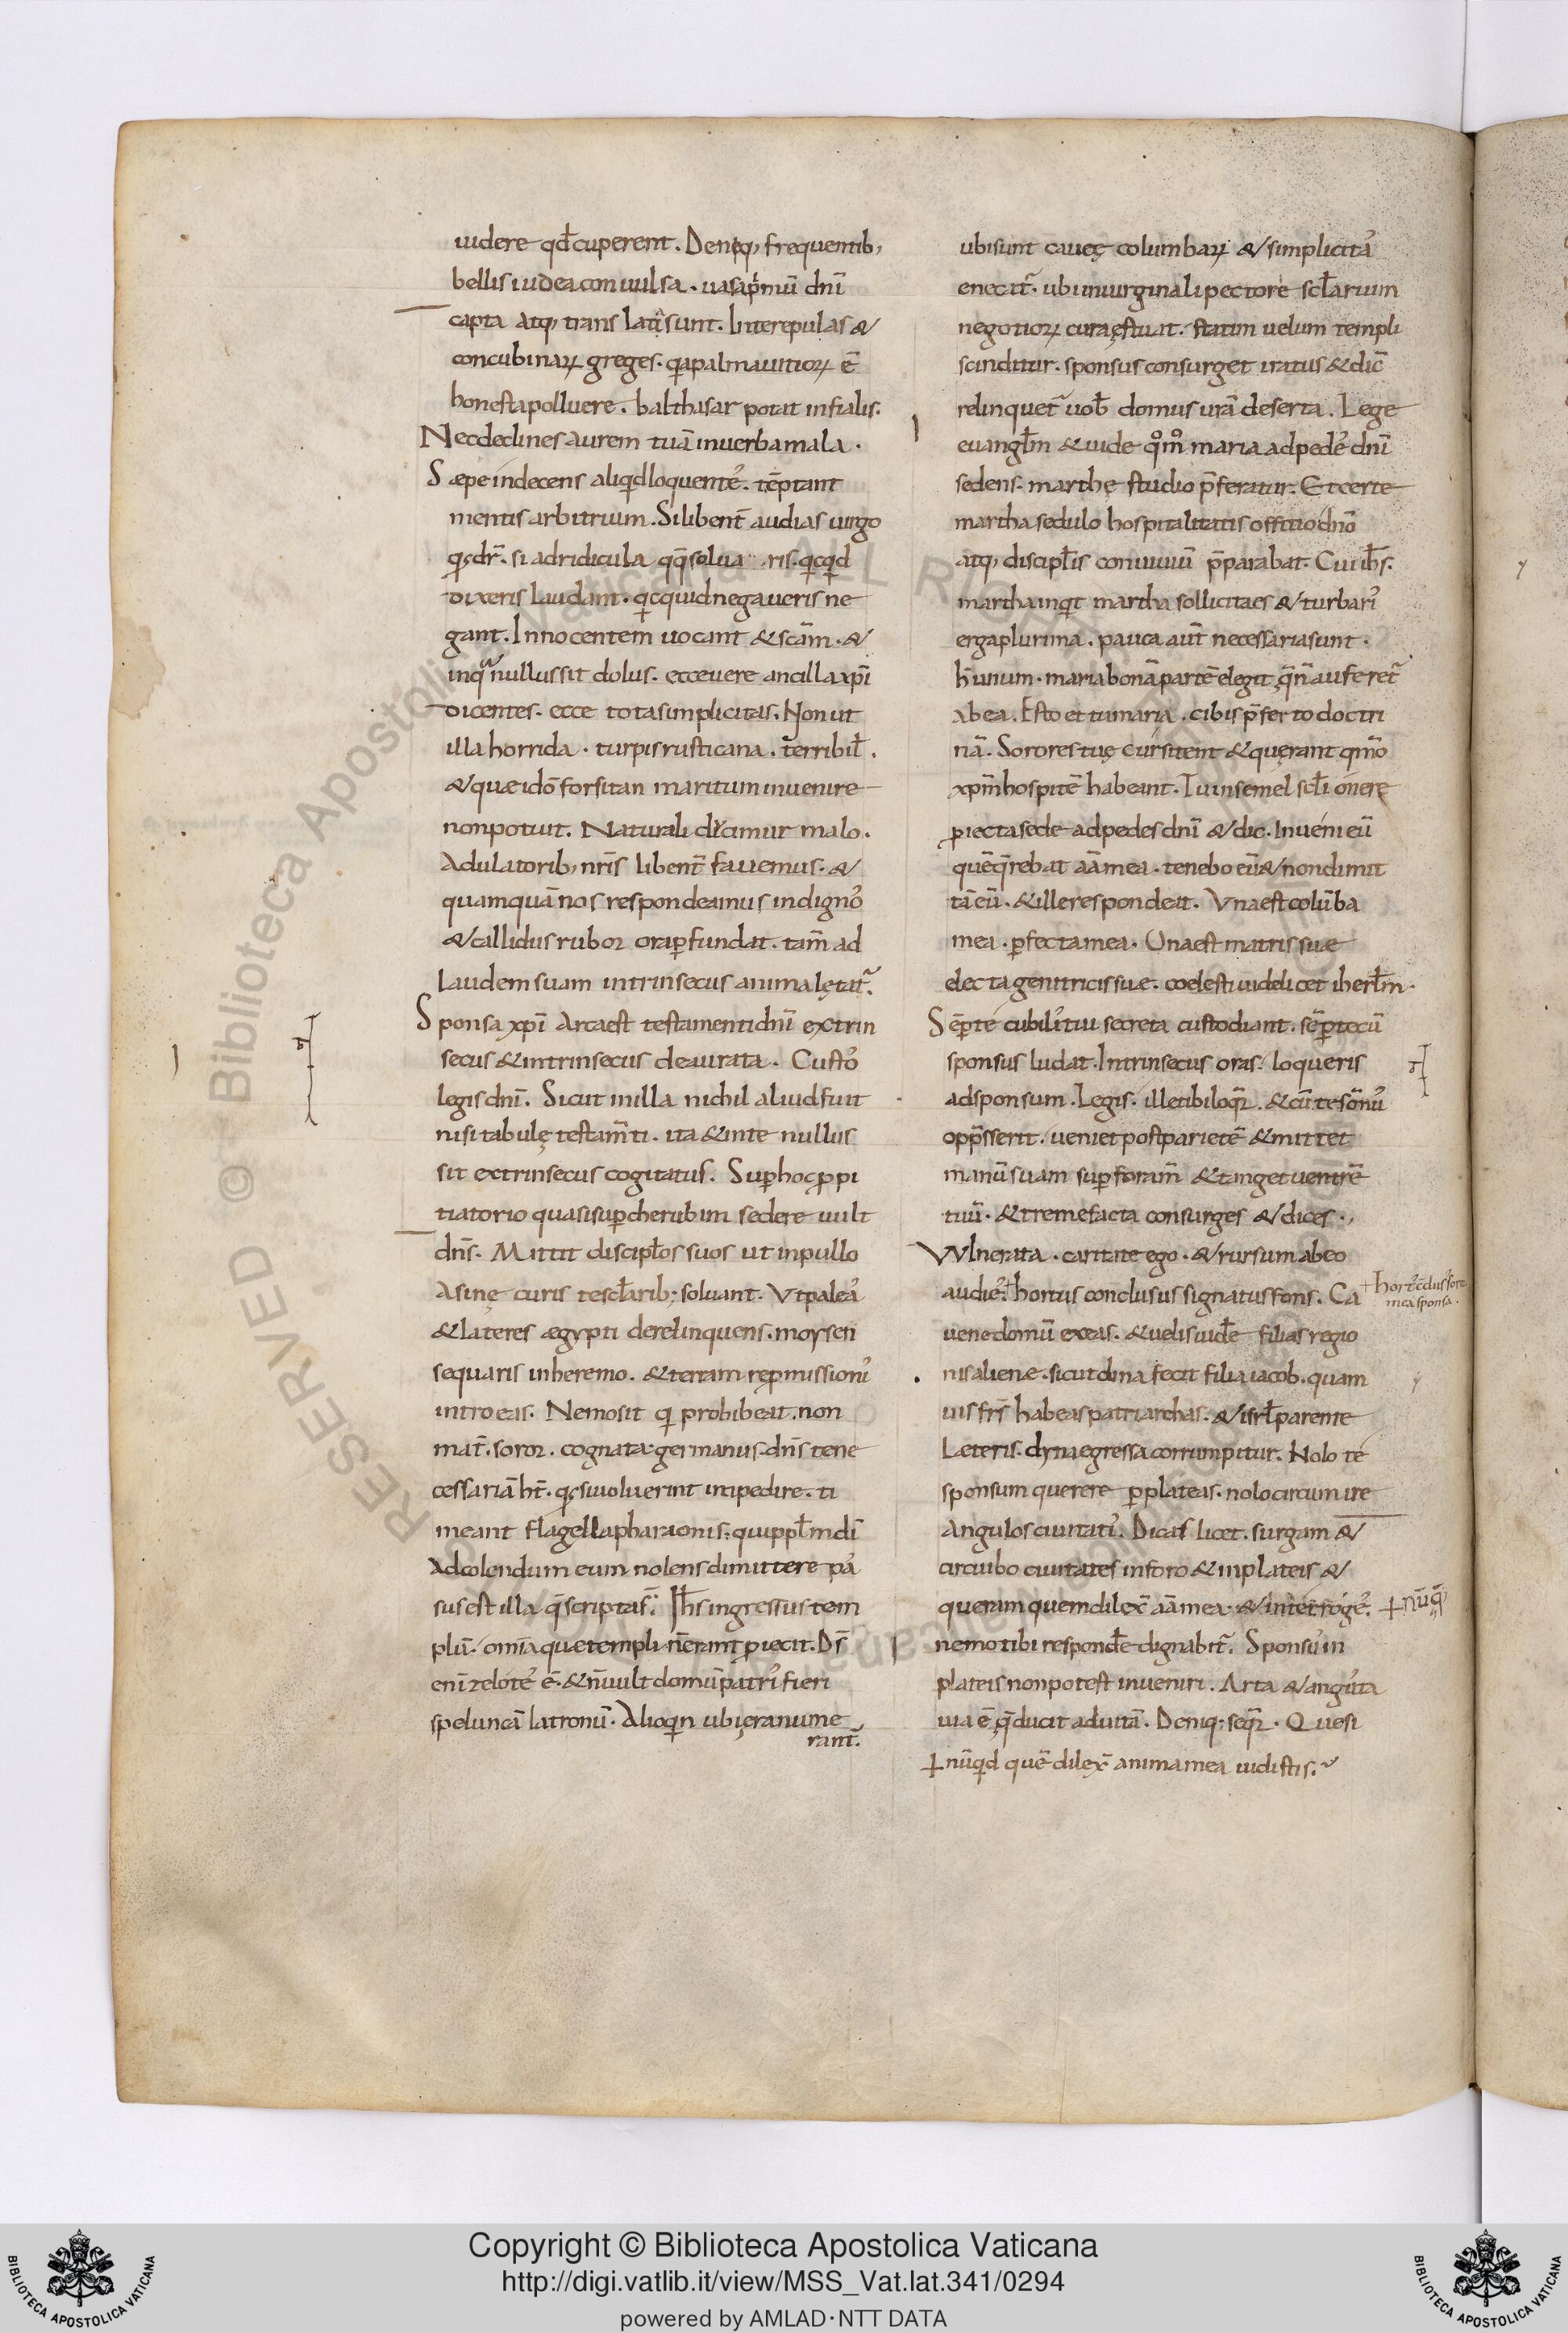 uidere qđ cuperent. Deniq, frequentib,
bellis iudea conuulsa. uasa p̄mū dnī
capta atq, translatą sunt. Inter epulas &
concubinarꝝ greges. qa palma uitiorꝝ ē
honesta polluere. balthasar potat in fialis.
Nec declines aurem tuā in uerba mala.
Sæpe indecens aliqd loquentes. tēptant
mentis arbitrium. Si libent̄ audias uirgo
q̨ dr̄. si ad ridicula qq̄ solua ris. qcqd
dixeris laudant. qcquid negaueris ne
gant. Innocentem uocant & scām. &
in qua nullus sit dolus. ecce uere ancilla xp̄i
dicentes. ecce tota simplicitas. Non ut
illa horrida. turpis rusticana. terribil̄.
& quæ idō forsitan maritum inuenire
non potuit. Naturali ducimur malo.
Adulatorib, nr̄is libent̄ fauemus. &
quamquā nos respondeamus indignos
& callidus rubor ora ꝑfundat. tam̄ ad
laudem suam intrinsecus anima lętat̄.
Sponsa xp̄i arca est testamenti dnī extrin
secus & intrinsecus deaurata. Custos
legis dnī. Sicut in illa nichil aliud fuit
nisi tabulę testam̄ti. ita & in te nullus
sit extrinsecus cogitatus. Suꝑ hoc ꝓpi
tiatorio quasi suꝑ cherubim sedere uult
dn̄s. Mittit discipl̄os suos ut in pullo
asinę curis te scl̄arib; soluant. Vt paleas
& lateres ægypti derelinquens. moysen
sequaris in heremo. & terram reꝓmissionis
introeas. Nemo sit q prohibeat. non
mat̄. soror. cognata. germanus. dn̄s te ne
cessariā ht̄. q̨ si uoluerint inpedire. ti
meant flagella pharaonis. qui ppl̄m dī
ad colendum eum nolens dimittere pas
sus est illa q̄ scripta s̄. Ih̄s ingressus tem
plū. omīa quæ templi n̄ erant ꝓiecit. Ds̄
enī zelotes ē. & n̄ uult domū patris fieri
speluncā latronū. Alioqn ubi ęra nume
rant̄.
ubi sunt caueę columbarꝝ & simplicitas
enecat̄. ubi in uirginali pectore scl̄arium
negotiorꝝ cura ęstuat. statim uelum templi
scinditur. sponsus consurget iratus & dic̄
relinquet̄ uob̄ domus urā deserta. Lege
euangl̄m & uide qm̊o maria ad pedes dnī
sedens. marthę studio p̄feratur. Et certe
martha sedulo hospitalitatis offitio dnō
atq, discipl̄is conuiuiū p̄parabat. Cui ih̄s.
martha inqt martha sollicita es & turbaris
erga plurima. pauca aut̄ necessaria sunt.
h̄ unum. maria bonā partē elegit q̄ n̄ auferet̄
ab ea. Esto et tu maria. cibis p̄ferto doctri
nā. Sorores tuę cursitent & quęrant qm̄o
xpm̄ hospitē habeant. Tu insemel scl̄i onere
ꝓiecta sede ad pedes dnī & dic. Inueni eū
quē q̄rebat aā mea. tenebo eū & non dimit
tā eū. & ille respondeat. Vna est colūba
mea. ꝑfecta mea. Una est matris suæ
electa genitricis suæ. coelesti uidelicet iherl̄m.
Sēꝑ te cubilis tui secreta custodiant. sēꝑ tecū
sponsus ludat. Intrinsecus oras. loqueris
ad sponsum. Legis. ille tibi loqr̄. & cū te sōnus
opp̄sserit. ueniet post parietē & mittet
manū suam suꝑ foram̄ & tanget uentrē
tuū. & tremefacta consurges & dices.,
VVlnerata. caritate ego. & rursum ab eo
audies. + hortus conclusus signatus fons. Ca
+ hortꝰ c̄clusꝰ soror
mea sponsa.
ue ne domū exeas. & uelis uidē filias regio
nis alienæ. sicut dina fecit filia iacob. quam
uis fr̄s habeas patriarchas. & isrl̄ parente
læteris. dyna egressa corrumpitur. Nolo te
sponsum querere ꝑ plateas. nolo circumire
angulos ciuitatis. Dicas licet. surgam &
circuibo ciuitates in foro & in plateis &
queram quem dilex̄ aā mea. & interroges. + nūq̄
nemo tibi respondē dignabit̄. Sponsus in
plateis non potest inueniri. Arta & angusta
uia ē q̨ ducit ad uitā. Deniq; seqr̄. Quesi
+ nūqd quē dilex̄ anima mea uidistis.
Copyright © Biblioteca Apostolica Vaticana
http://digi.vatlib.it/view/MSS_Vat.lat.341/0294
powered by AMLAD·NTT DATA